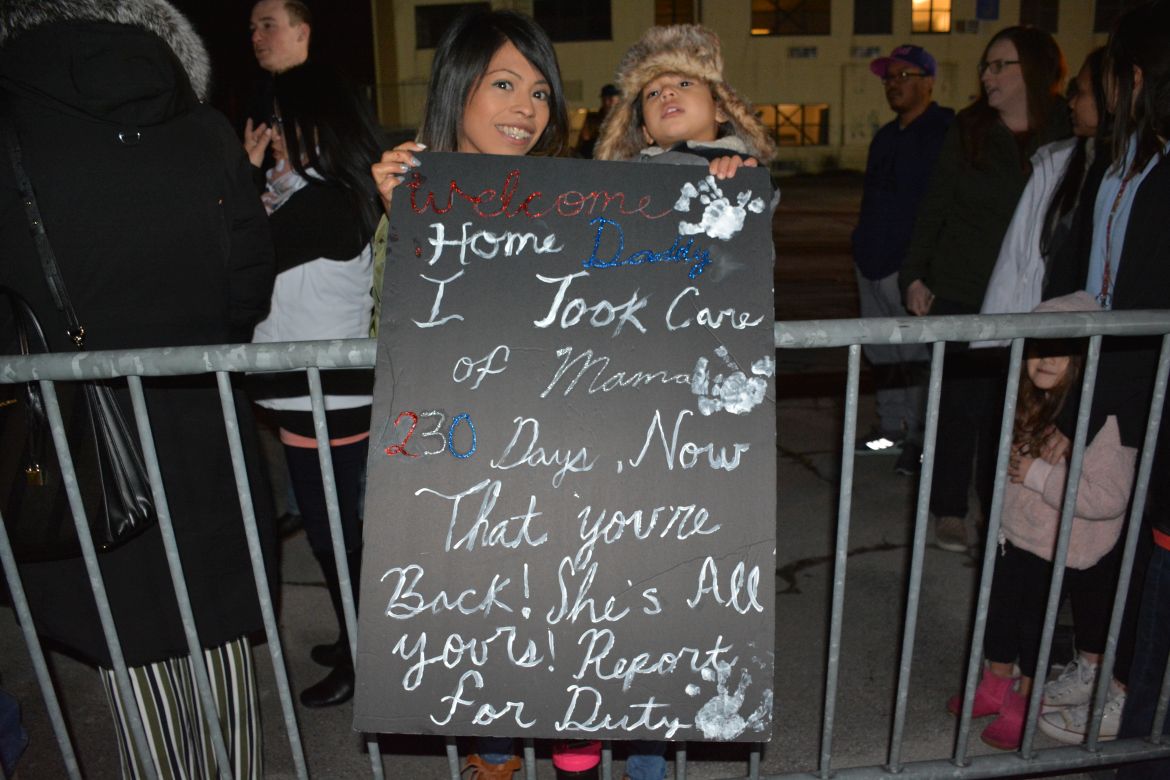 Welcome
Home Daddy
I Took Care
of Mama
230 Days, Now
That you're
Back! She's All
yours! Report
For Duty